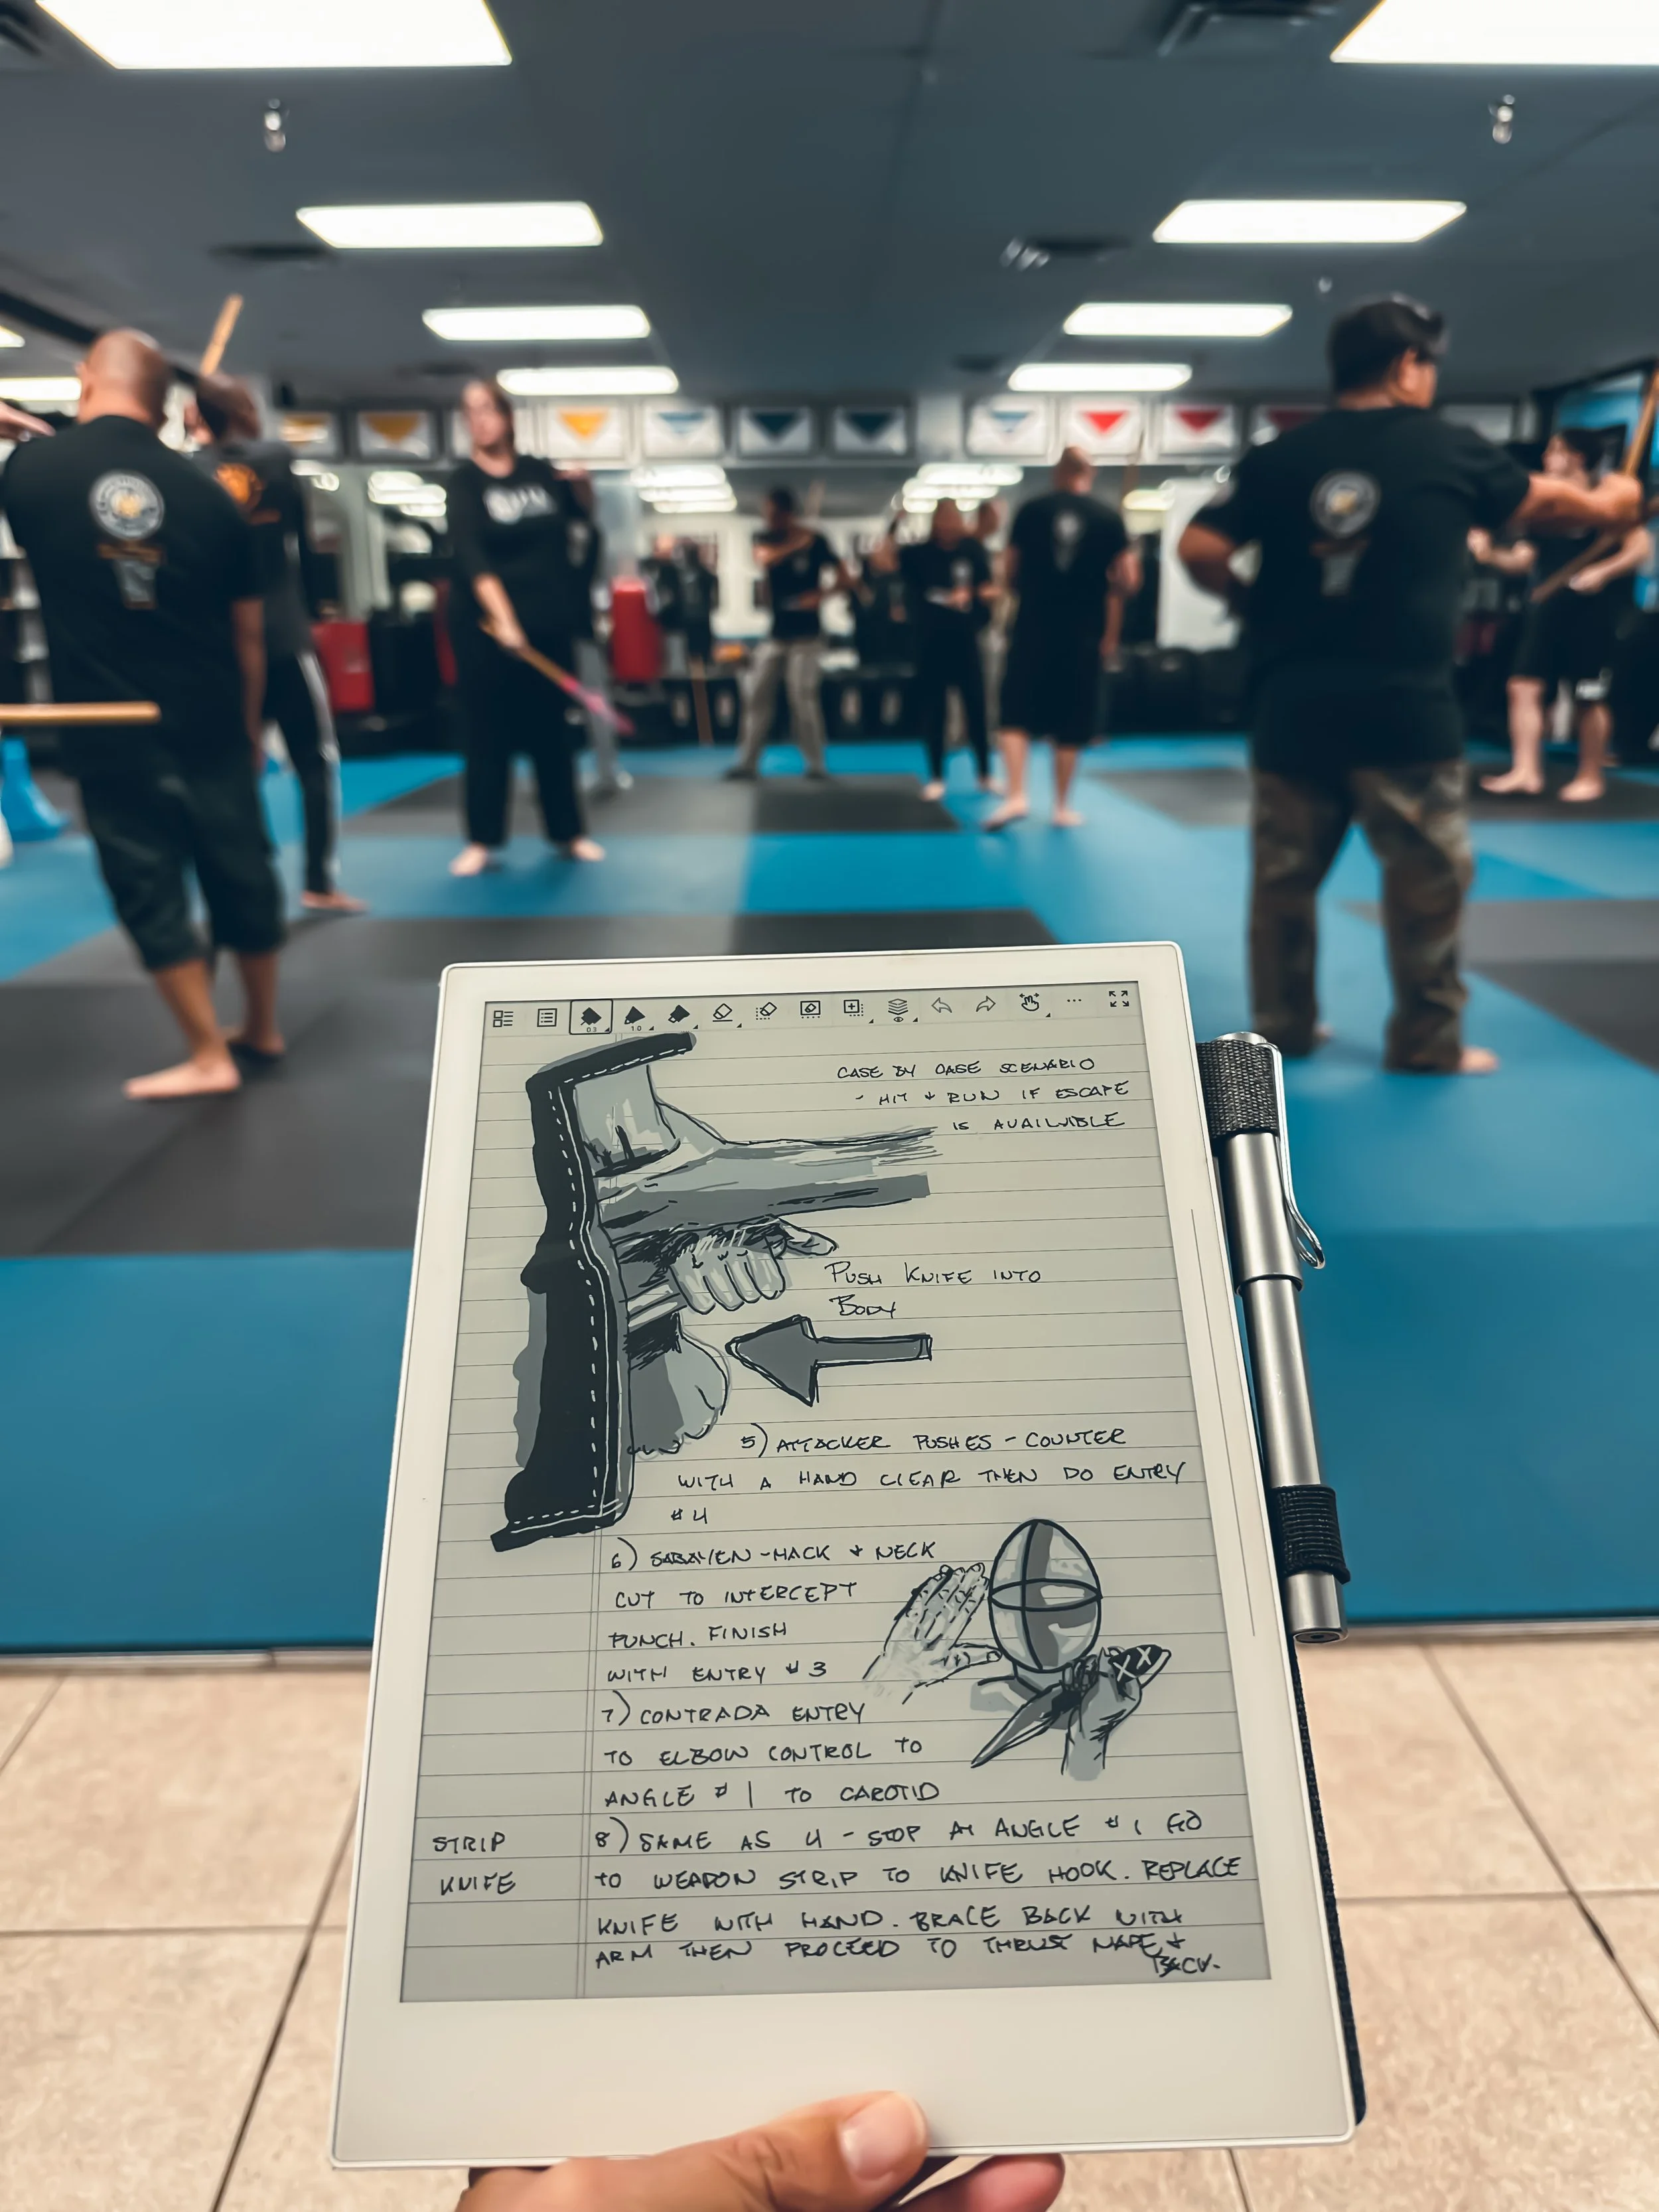 0.3
1.0
CASE BY CASE SCENARIO
- HIT & RUN IF ESCAPE
IS AVAILABLE
PUSH KNIFE INTO
BODY
5) ATTACKER PUSHES - COUNTER
WITH A HAND CLEAR THEN DO ENTRY
#4
6) - HACK & NECK
CUT TO INTERCEPT
PUNCH. FINISH
WITH ENTRY #3
7) CONTRADA ENTRY
TO ELBOW CONTROL TO
ANGLE #1 TO CAROTID
STRIP
KNIFE
8) SAME AS 4 - STOP AT ANGLE #1 GO
TO WEAPON STRIP TO KNIFE HOOK. REPLACE
KNIFE WITH HAND. BRACE BACK WITH
ARM THEN PROCEED TO THRUST NAPE &
BACK.